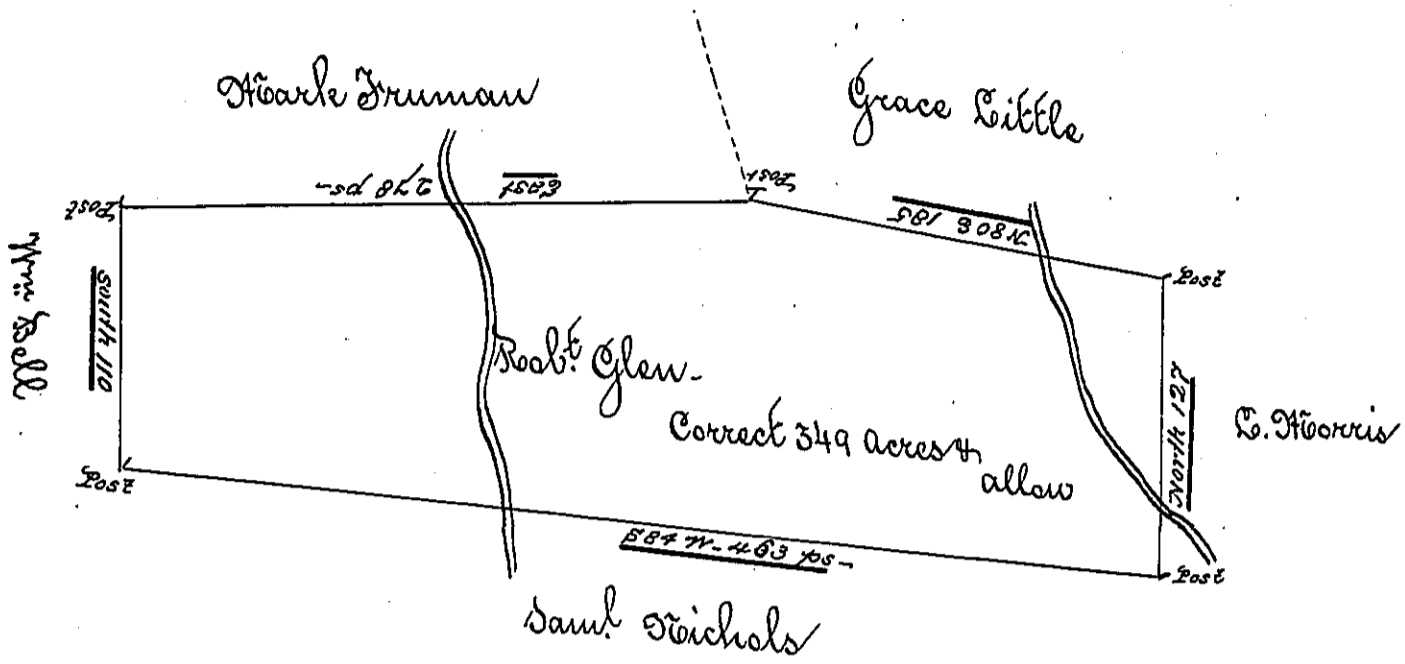 Mark Fruman
Grace Little
278 ps-
East
Post
N 80 E 185
Post
Post
Wm Bell
South 110
Robt. Glen-
Correct 349 acres &
allow
North 127
L. Morris
Post
S 84 W- 463 ps-
Post
Saml. Nichols